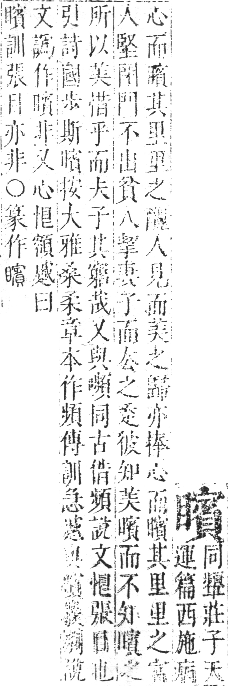 矉同顰莊子天
運篇西施病
心而矉其里里之醜人見而美之歸亦捧心而矉其里里之富
人堅閉門不出貧人挈妻子而去之走彼知美矉而不知矉之
所以美惜乎而夫子其窮哉又與顰同古借頻說文恨張目也
引詩國步斯矉按大雅桑柔章本作頻傳訓急
文譌作矉非又心恨額蹙曰
矉訓張目亦非○篆作矉